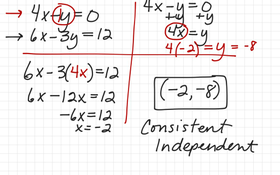 → 4x - y = 0
→ 6x - 3y = 12
6x - 3(4x) = 12
6x - 12x = 12
-6x = 12
x = -2
4x - y = 0
+y +y
4x = y
4(-2) = y = -8
(-2, -8)
Consistent
Independent